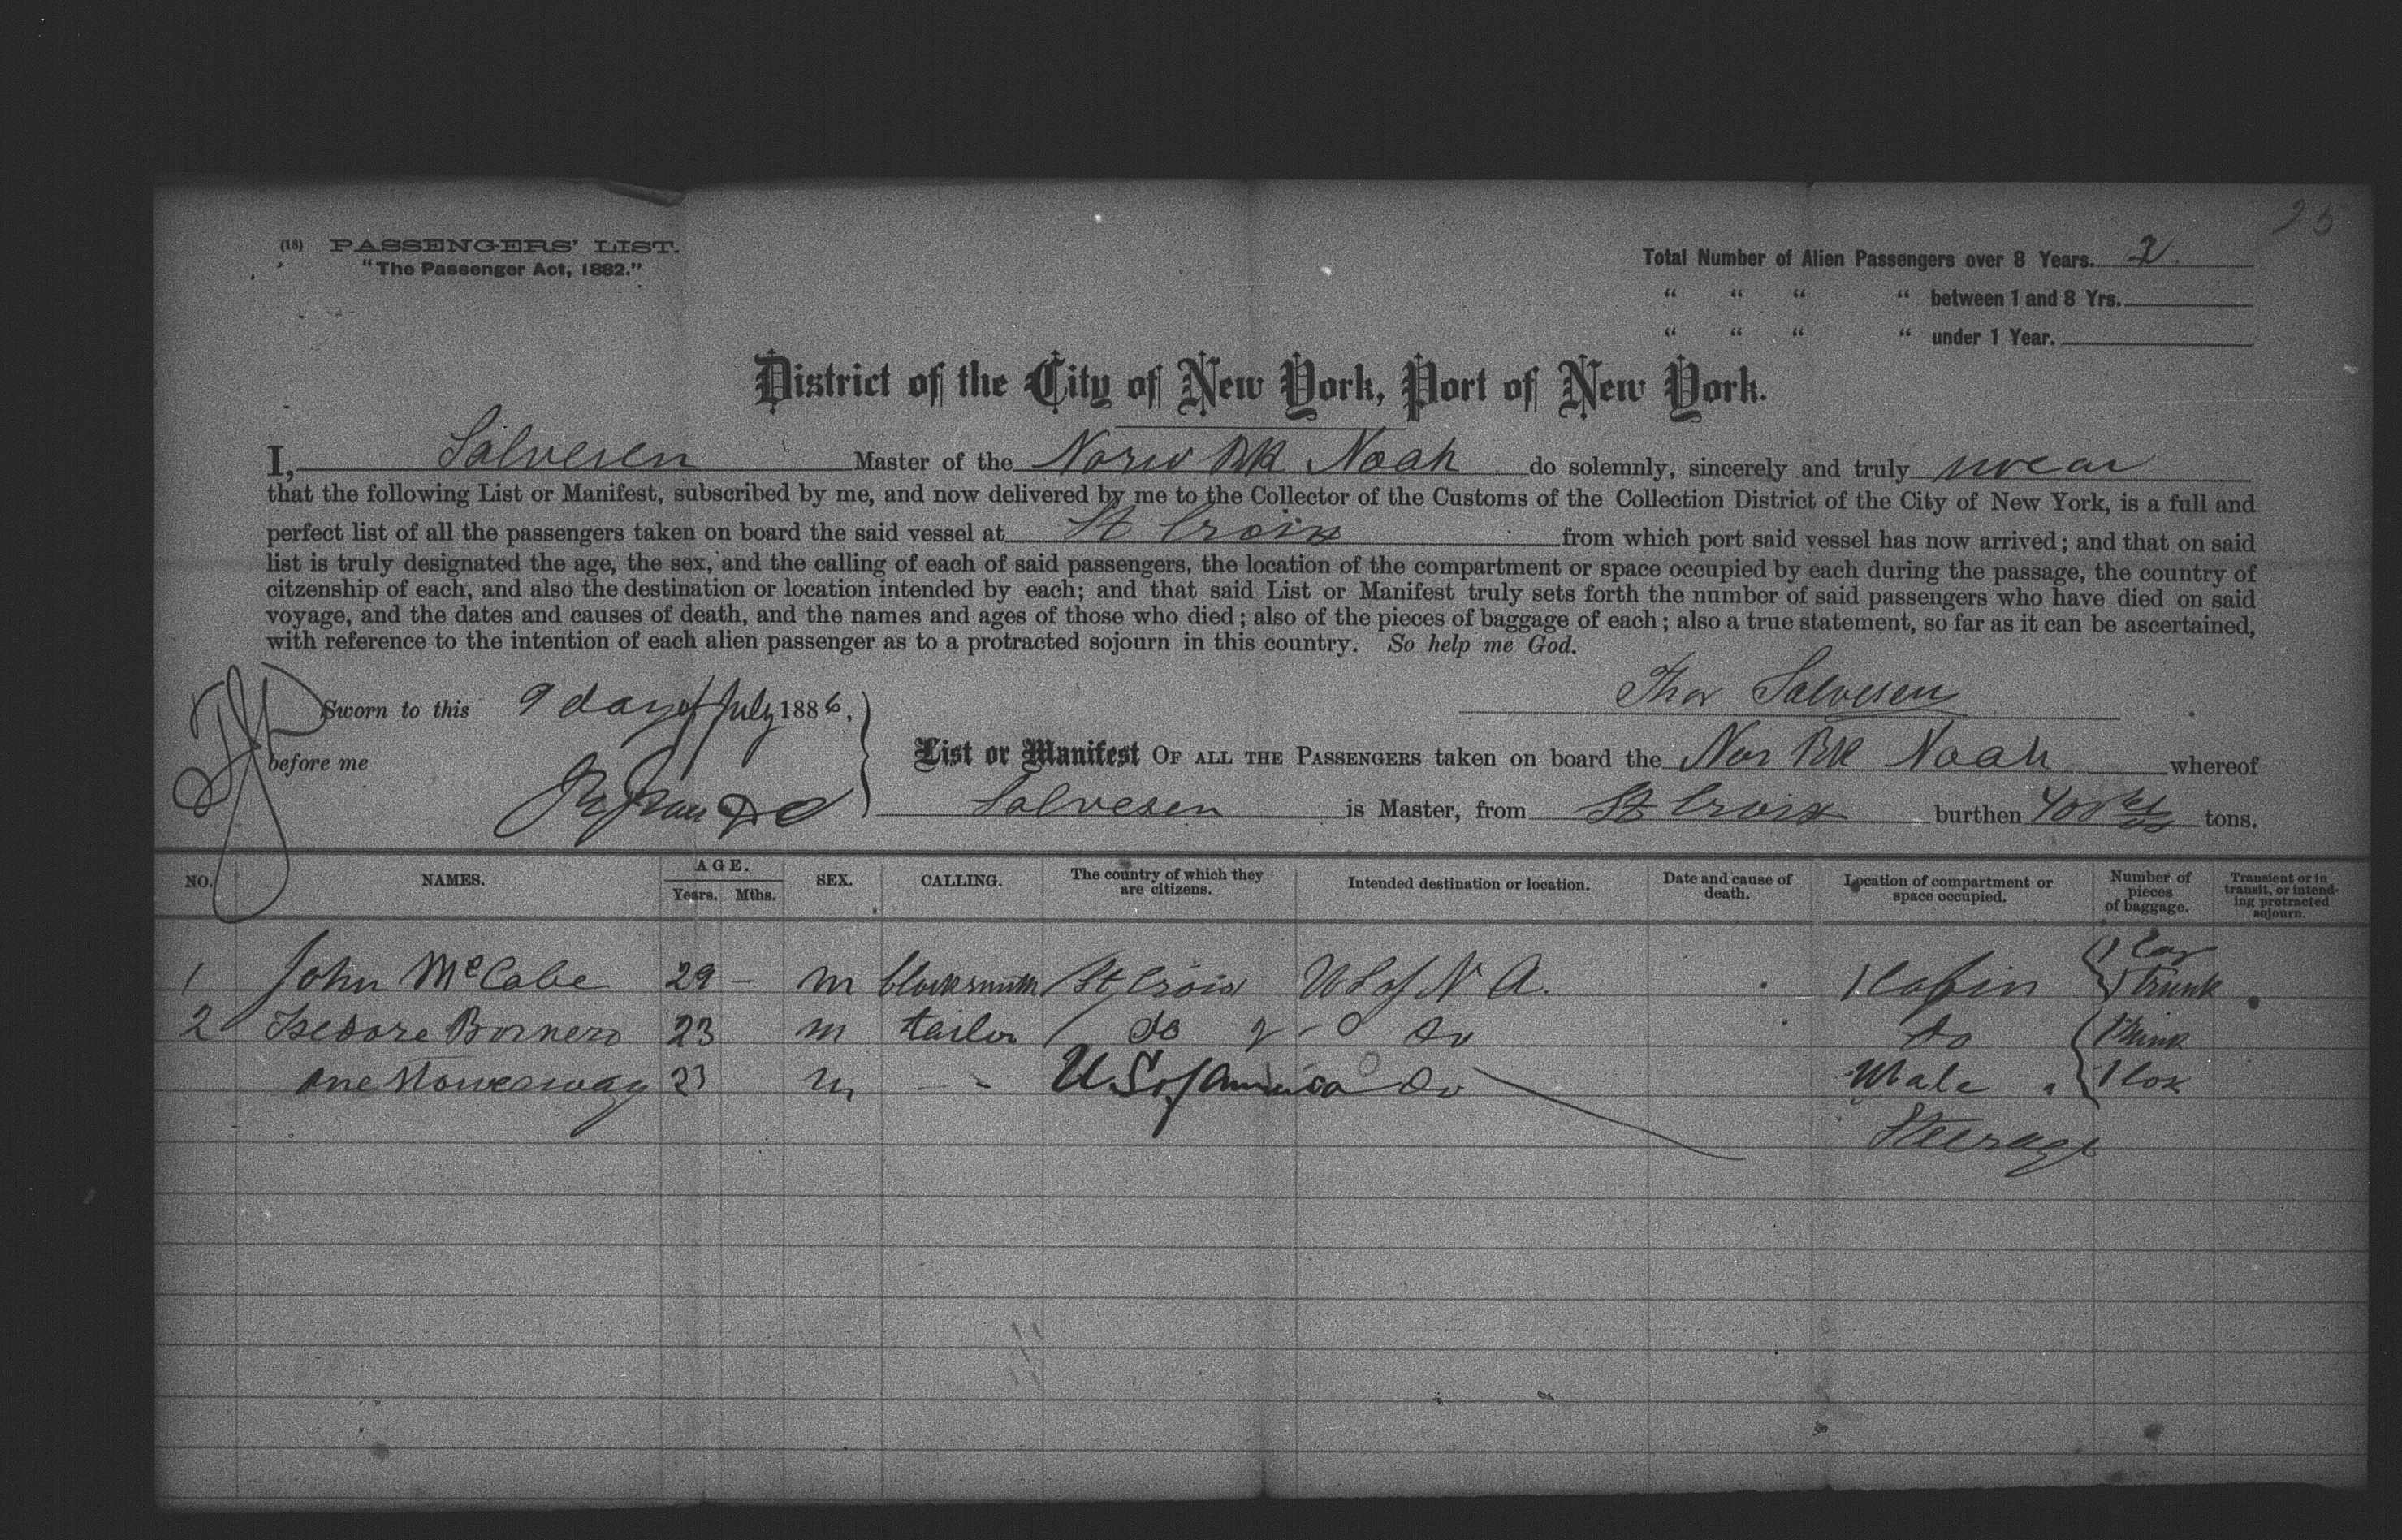 25
(18) PASSENGERS' LIST.
"The Passenger Act, 1882."
Total Number of Alien Passengers over 8 Years. 2
" " " " between 1 and 8 Yrs.
" " " " under 1 Year.
District of the City of New York, Port of New York.
I, Salvesen Master of the Norw Bk Noah do solemnly, sincerely and truly swear
that the following List or Manifest, subscribed by me, and now delivered by me to the Collector of the Customs of the Collection District of the City of New York, is a full and
perfect list of all the passengers taken on board the said vessel at St Croix from which port said vessel has now arrived; and that on said
list is truly designated the age, the sex, and the calling of each of said passengers, the location of the compartment or space occupied by each during the passage, the country of
citzenship of each, and also the destination or location intended by each; and that said List or Manifest truly sets forth the number of said passengers who have died on said
voyage, and the dates and causes of death, and the names and ages of those who died; also of the pieces of baggage of each; also a true statement, so far as it can be ascertained,
with reference to the intention of each alien passenger as to a protracted sojourn in this country. So help me God.
Thor Salvesen
Sworn to this 9 day of July 1886,
before me
List or Manifest OF ALL THE PASSENGERS taken on board the Nor Bk Noah whereof
Salvesen is Master, from St Croix burthen tons.
NO. NAMES. AGE. Years. Mths. SEX. CALLING. The country of which they are citizens. Intended destination or location. Date and cause of death. Location of compartment or space occupied. Number of pieces of baggage. Transient or in transit, or intending protracted sojourn.
1 John McCabe 29 - m blacksmith St Croix U S of N A. 1 Cabin 1 Trunk
2 Isedore 23 m tailor do do do Trunk
one Stowaway 23 m - - U.S. of America do Male 1 box
Steerage